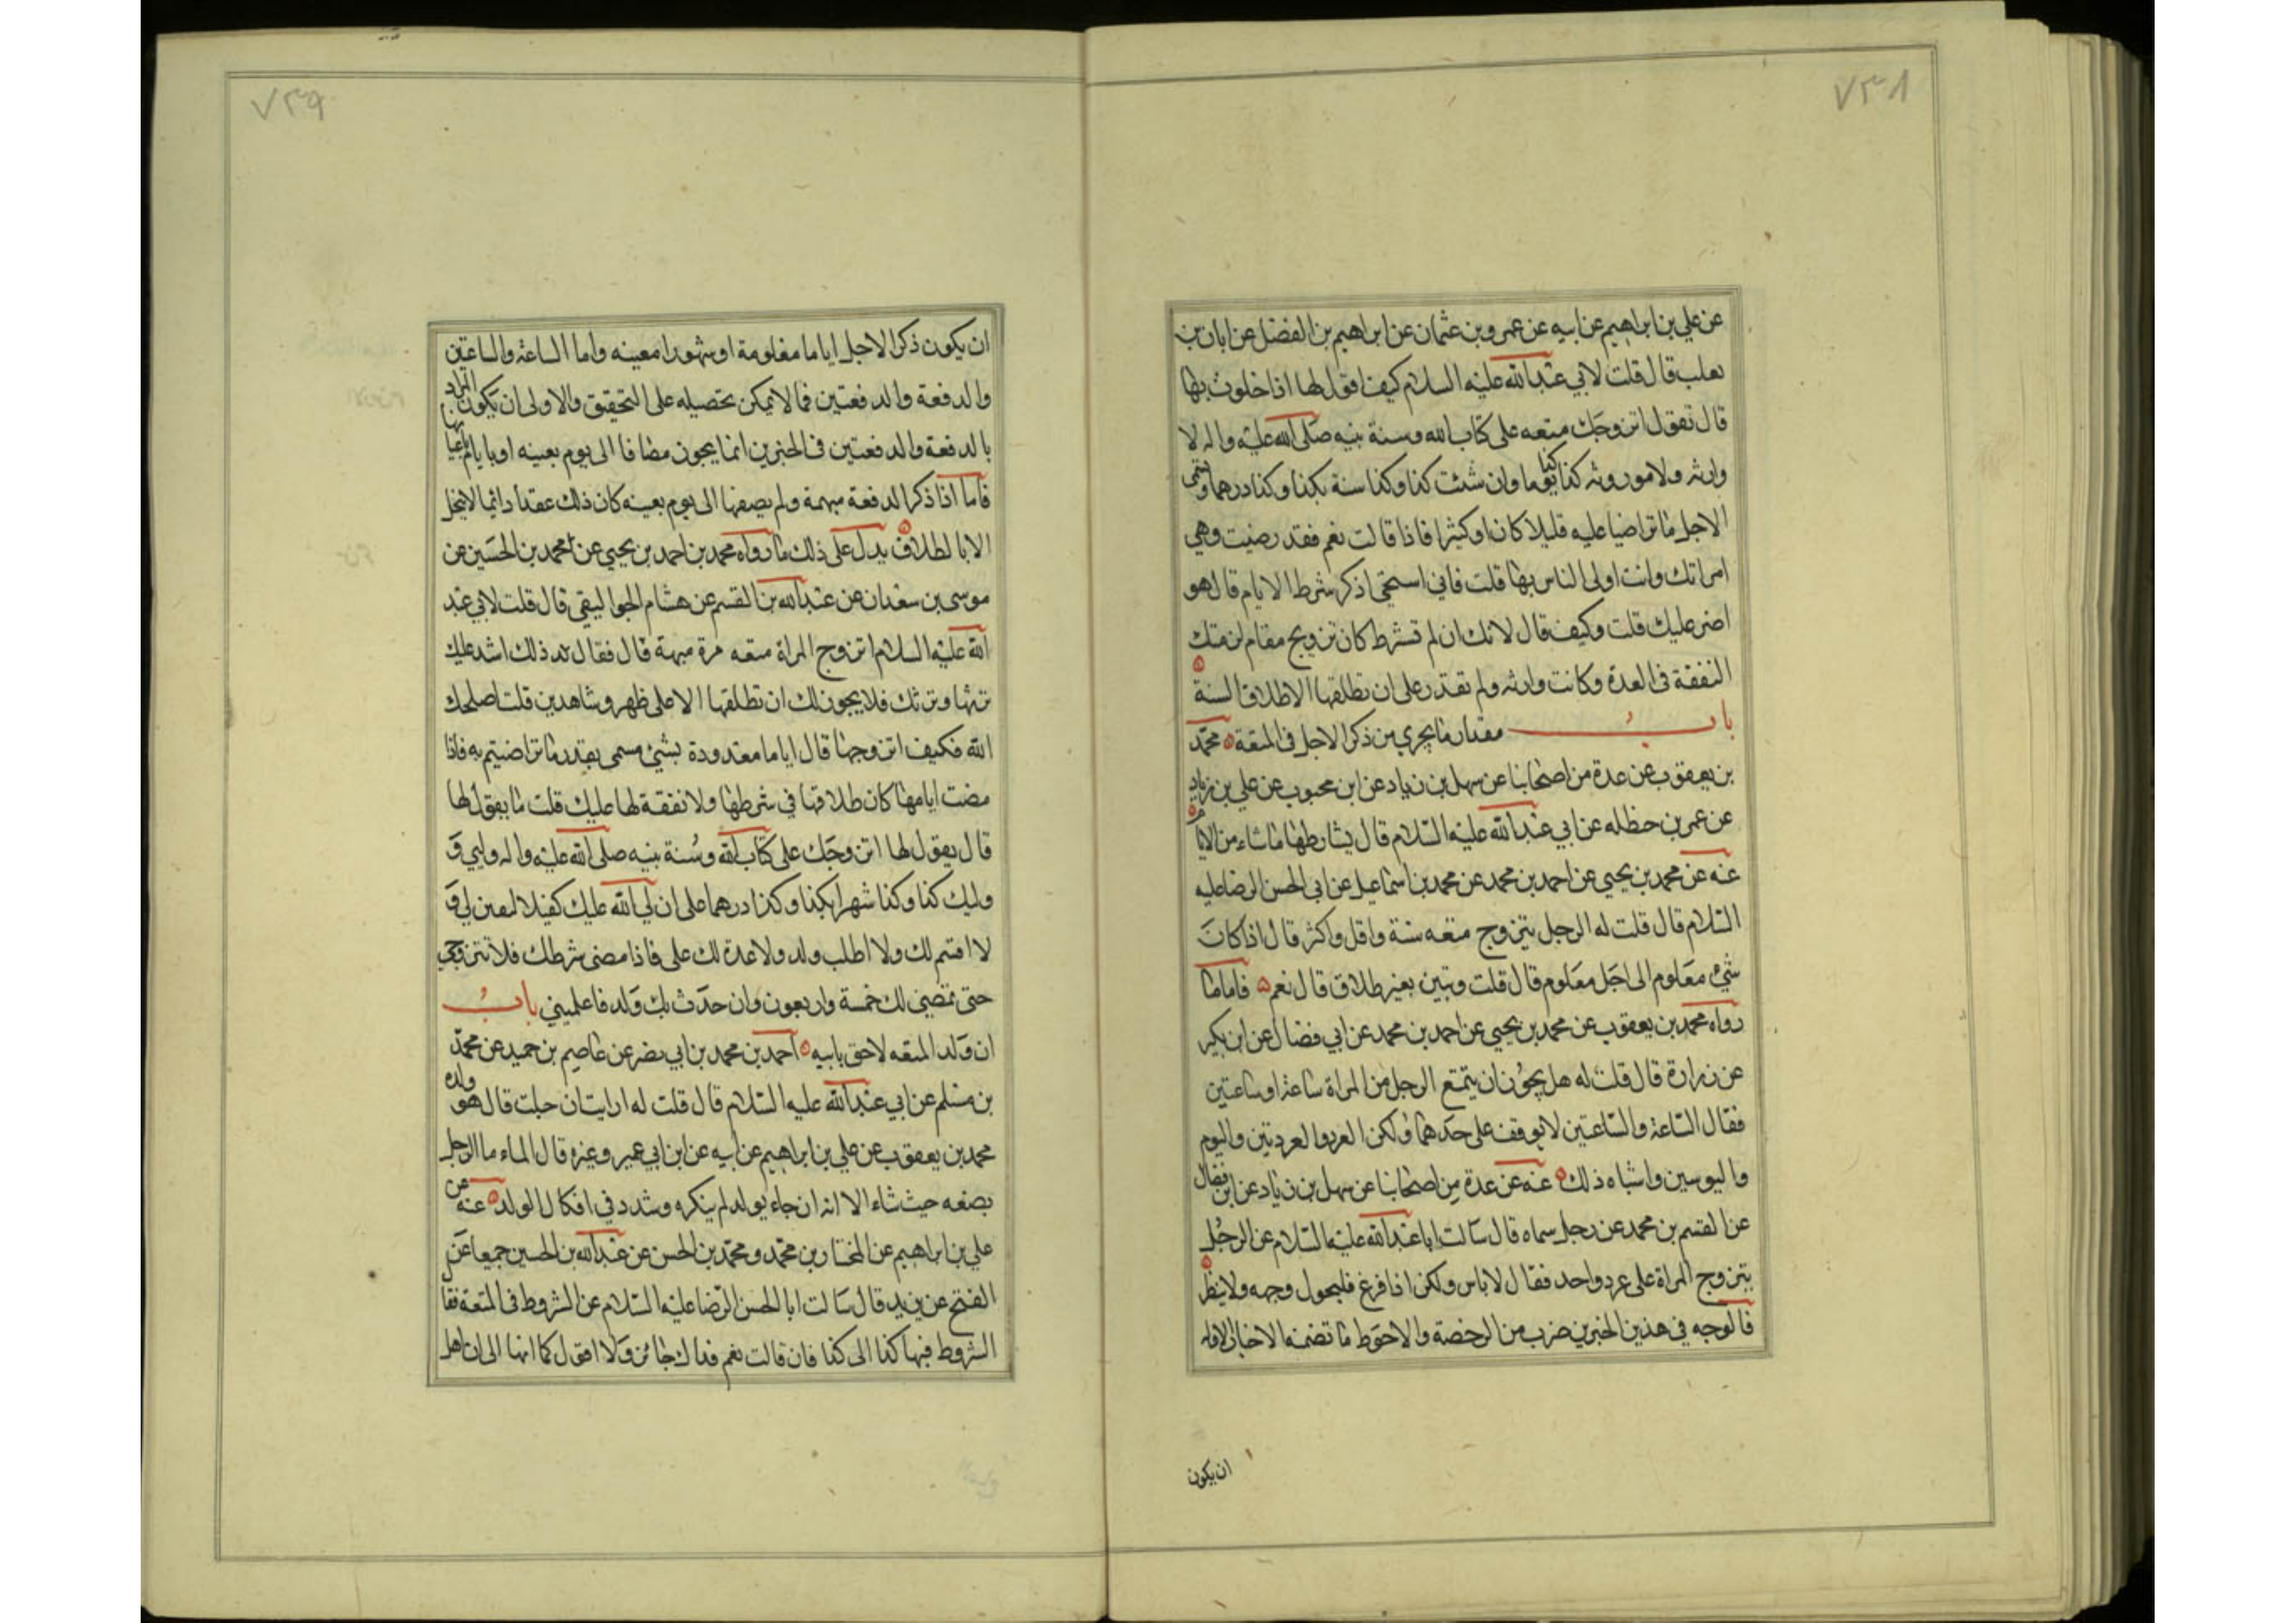 ٧٣٨
عن علي بن ابراهيم عن ابيه عن عمرو بن عثمان عن ابراهيم بن الفضل عن ابان بن
تعلب قال قلت لابي عبد الله عليه السلام كيف اقول لها اذا خلوت بها
قال تقول اتزوجك متعه على كتاب الله وسنة نبيه صلى الله عليه واله لا
وارثه ولا موروثه كذا وكذا يوما وان شئت كذا وكذا سنة بكذا وكذا درهما وتسمى
الاجل ما تراضيا عليه قليلا كان او كثيرا فاذا قالت نعم فقد رضيت وهي
امراتك وانت اولى الناس بها قلت فاني استحيى اذكر شرط الايام قال هو
اضر عليك قلت وكيف قال لانك ان لم تشرط كان تزويج مقام لزمتك
النفقة فى العدة وكانت وارثه ولم تقدر على ان تطلقها الا طلاق السنة
باب مقدار ما يجري من ذكر الاجل فى المتعة محمد
بن يعقوب عن عدة من اصحابنا عن سهل بن زياد عن ابن محبوب عن علي بن زياد
عن عمر بن حنظله عن ابي عبد الله عليه السلام قال يشارطها ما شاء من الايام
عنه عن محمد بن يحيى عن احمد بن محمد عن محمد بن اسماعيل عن ابى الحسن الرضا عليه
السلام قال قلت له الرجل يتزوج متعه سنة واقل واكثر قال اذا كان
شيء معلوم الى اجل معلوم قال قلت وتبين بغير طلاق قال نعم فاما ما
رواه محمد بن يعقوب عن محمد بن يحيى عن احمد بن محمد عن ابي فضال عن ابن بكير
عن زرارة قال قلت له هل يجوز ان يتمتع الرجل من المراة ساعة او ساعتين
فقال الساعة والساعتين لا يوقف على حدهما ولكن العرد والعردتين واليوم
واليومين واشباه ذلك عنه عن عدة من اصحابنا عن سهل بن زياد عن ابن فضال
عن القسم بن محمد عن رجل سماه قال سالت ابا عبد الله عليه السلام عن الرجل
يتزوج المراة على عرد واحد فقال لا باس ولكن اذا فرغ فليحول وجهه ولا ينظر
فالوجه في هذين الخبرين ضرب من الرخصة والاحوط ما تضمنه الاخبار الاوله
ان يكون
٧٣٩
ان يكون ذكر الاجل اياما معلومة او شهورا معينه واما الساعة والساعتين
والدفعة والدفعتين فما لا يمكن تحصيله على التحقيق والاولى ان يكون المراد
بالدفعة والدفعتين فى الخبرين انما يجوز مضافا الى يوم بعينه او بايام باعيانها
فاما اذا ذكر الدفعة مبهمة ولم يصفها الى يوم بعينه كان ذلك عقدا دائما لا ينحل
الا بالطلاق يدل على ذلك ما رواه محمد بن احمد بن يحيى عن محمد بن الحسين عن
موسى بن سعدان عن عبد الله بن القسم عن هشام الجواليقي قال قلت لابي عبد
الله عليه السلام اتزوج المراة متعه مرة مبهمة قال فقال ذلك اشد عليك
ترثها وترثك فلا يجوز لك ان تطلقها الا على طهر وشاهدين قلت اصلحك
الله فكيف اتزوجها قال اياما معدودة بشئ مسمى بقدر ما تراضيتم به فاذا
مضت ايامها كان طلاقها في شرطها ولا نفقة لها عليك قلت ما يقول لها
قال يقول لها اتزوجك على كتاب الله وسنة نبيه صلى الله عليه واله وليي و
وليك كذا وكذا شهرا بكذا وكذا درهما على ان لي الله عليك كفيلا لمعين لي و
لا اقسم لك ولا اطلب ولد ولا عدة لك على فاذا مضى شرطك فلا تتزوجي
حتى تمضي لك خمسة واربعون وان حدث بك ولد فاعلميني باب
ان ولد المتعه لاحق بابيه احمد بن محمد بن ابي نصر عن عاصم بن حميد عن محمد
بن مسلم عن ابي عبد الله عليه السلام قال قلت له ارايت ان حبلت قال هو ولده
محمد بن يعقوب عن علي بن ابراهيم عن ابيه عن ابن ابي عمير وغيره قال الماء ما الرجل
يضعه حيث شاء الا انه ان جاء بولد لم ينكره وشدد في افكال الولد عنه عن
علي بن ابراهيم عن المختار بن محمد ومحمد بن الحسن عن عبد الله بن الحسين جميعا عن
الفتح عن يزيد قال سالت ابا الحسن الرضا عليه السلام عن الشروط فى المتعة فقا
الشروط فيها كذا الى كذا فان قالت نعم فذاك جائز ولا اقول كما انها الى ان اهل